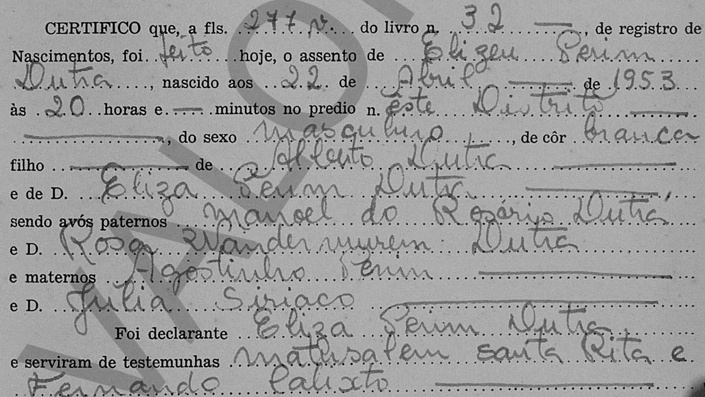 CERTIFICO que, a fls. 277 v do livro n. 32, de registro de
Nascimentos, foi feito hoje, o assento de Elizeu Perim
Dutra, nascido aos 22 de Abril de 1953
às 20 horas e minutos no predio n. êste Distrito
, do sexo masculino, de côr branca
filho de Alberto Dutra
e de D. Eliza Perim Dutra
sendo avós paternos Manoel do Rosário Dutra
e D. Rosa Wandermurem Dutra
e maternos Agostinho Perim
e D. Julia Siriaco
Foi declarante Eliza Perim Dutra
e serviram de testemunhas mathusalem santa Rita e
Fernando Calixto
VALOR